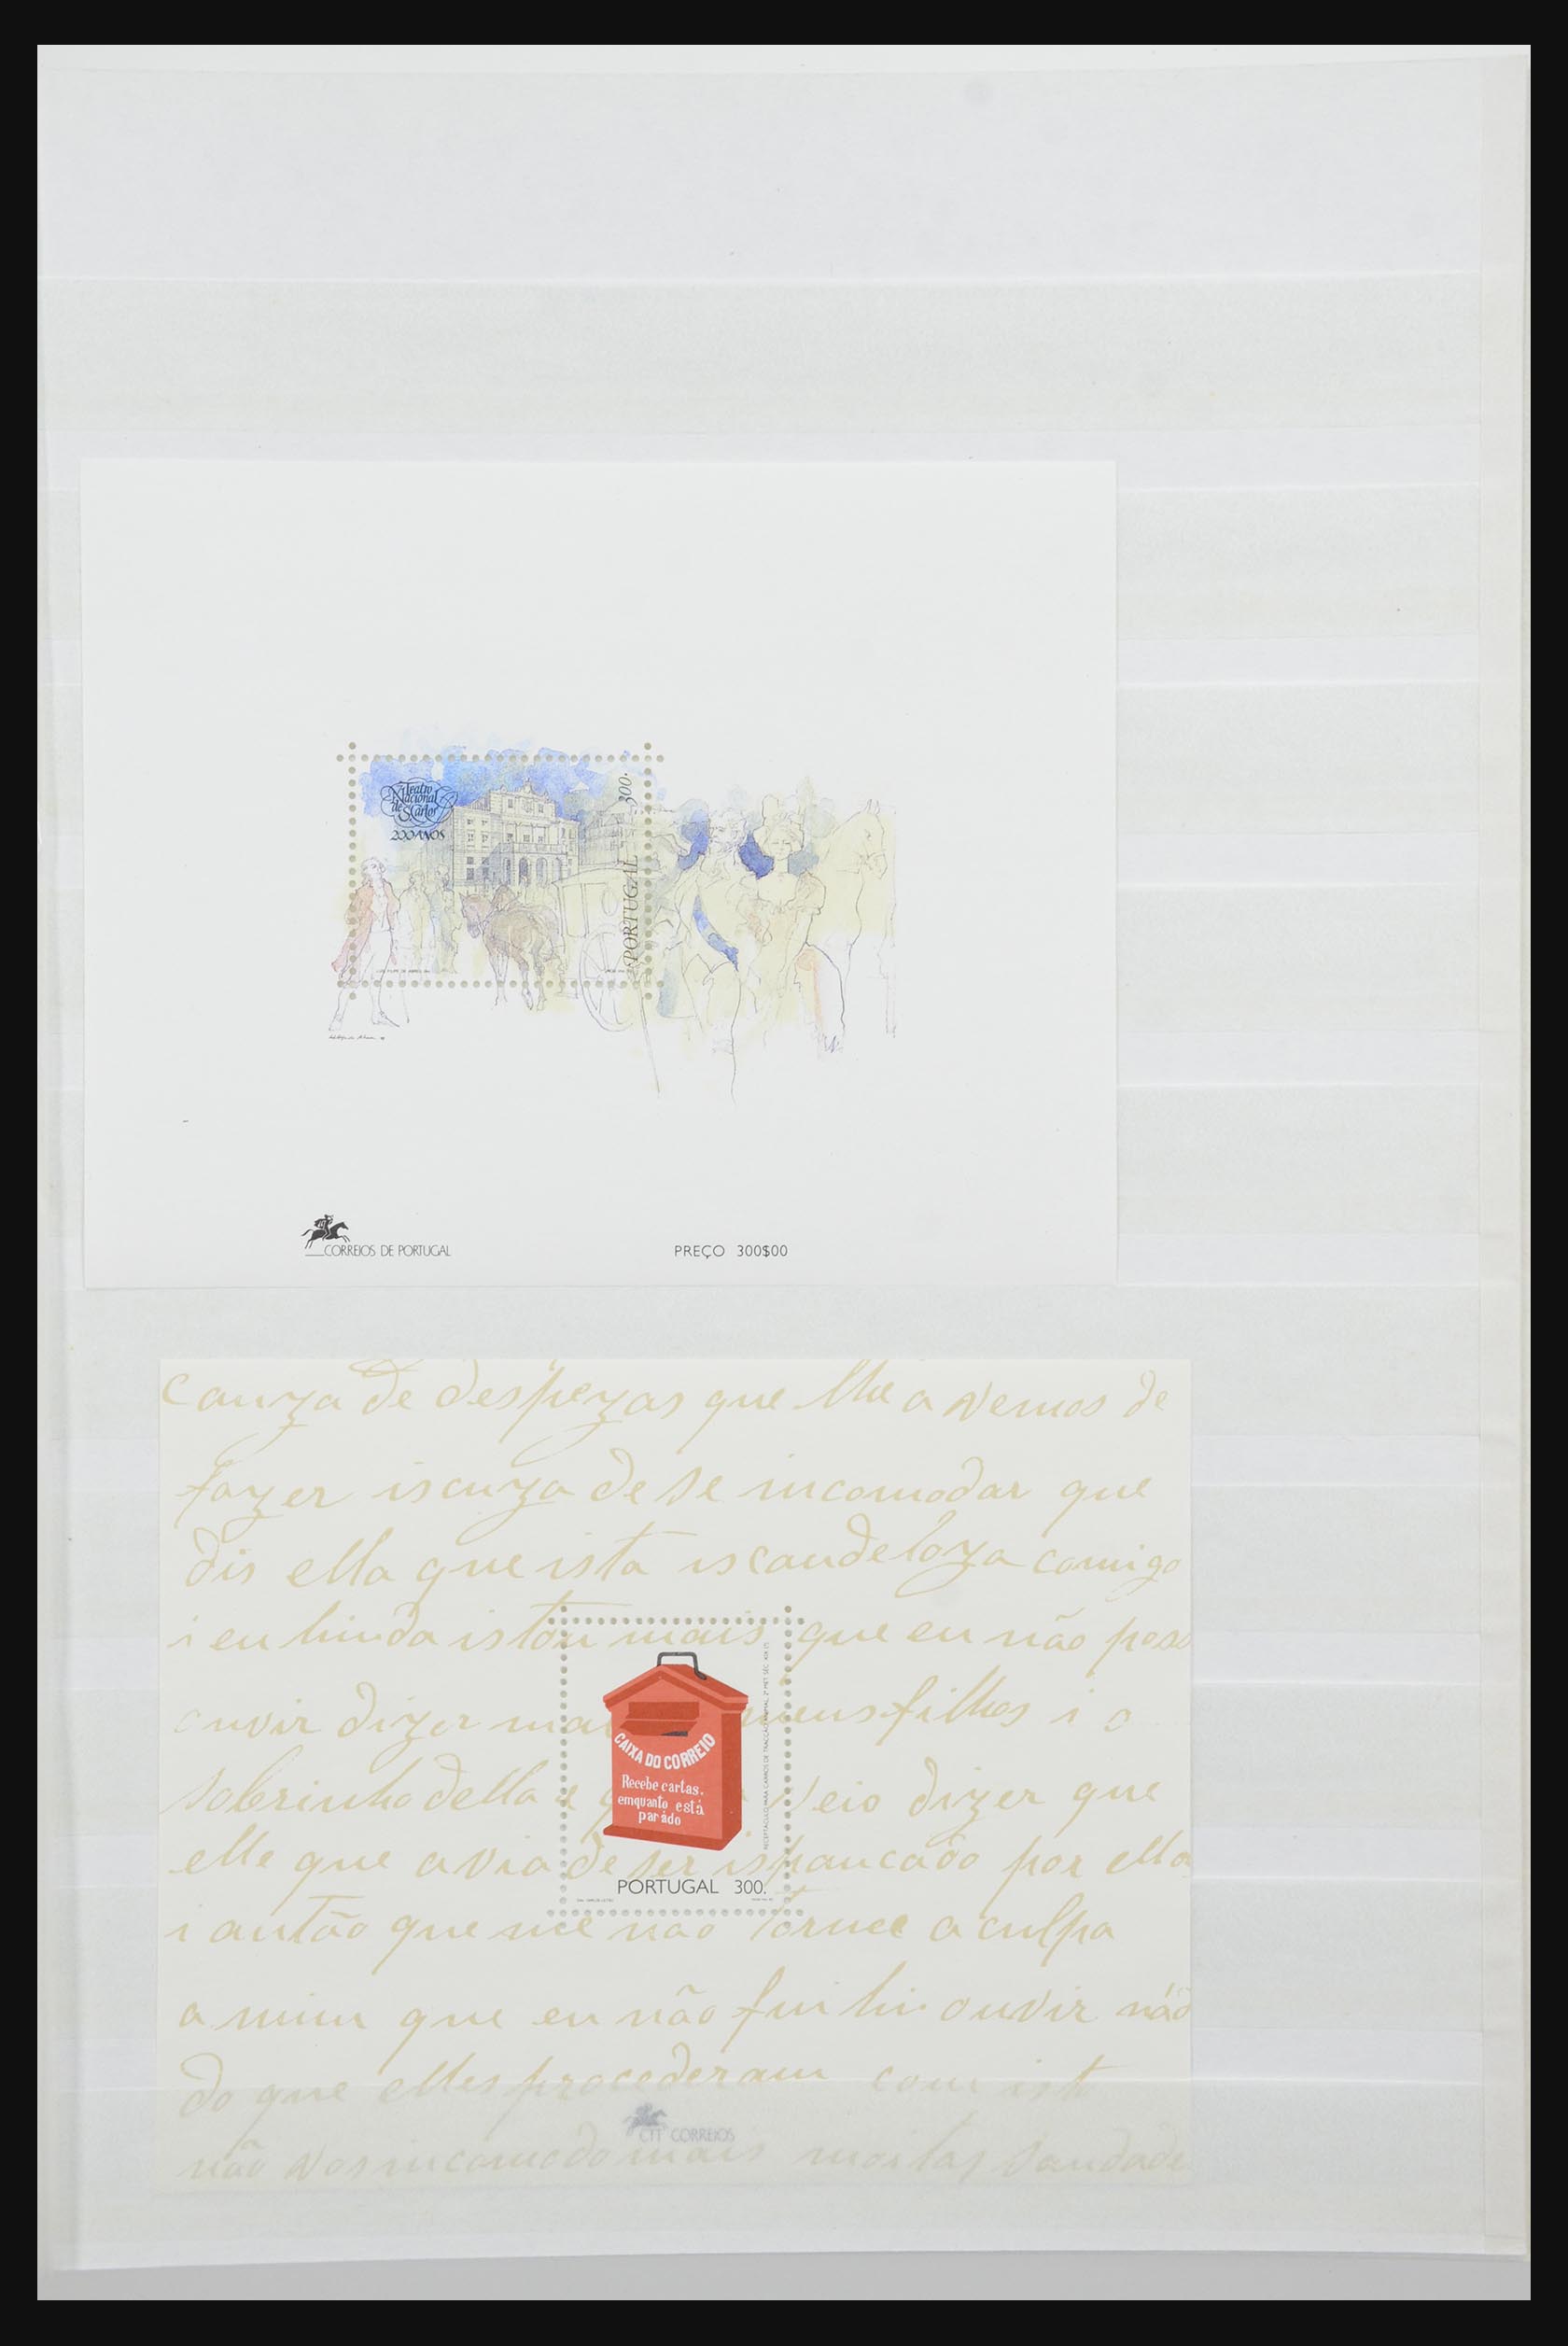 Teatro
Nacional
de S. Carlos
200 ANOS
300.
PORTUGAL
CORREIOS DE PORTUGAL
PREÇO 300$00
cauza de despezas que lhe avemos de
fazer iscuza de se incomodar que
dis ella que ista iscandeloza comigo
i eu hinda istou mais que eu não poss
ouvir dizer meus filhos i o
sobrinho della e veio dizer que
elle que avia de ser ispancado por ella
i antão que me não torne a culpa
a mim que eu não fui hi ouvir não
do que elles procederam com ist
não vos incomodo mais moitas saudade
CAIXA DO CORREIO
Recebe cartas,
emquanto está
parádo
RECEPTÁCULO PARA CARROS DE TRACÇÃO ANIMAL. 2ª MET. SÉC. XIX
PORTUGAL 300.
CTT CORREIOS